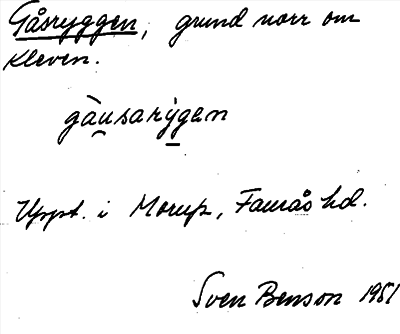 Gåsryggen, grund norr om
Kleven.
gàu̯sarỳgen
Uppt. i Morup, Faurås hd.
Sven Benson 1951